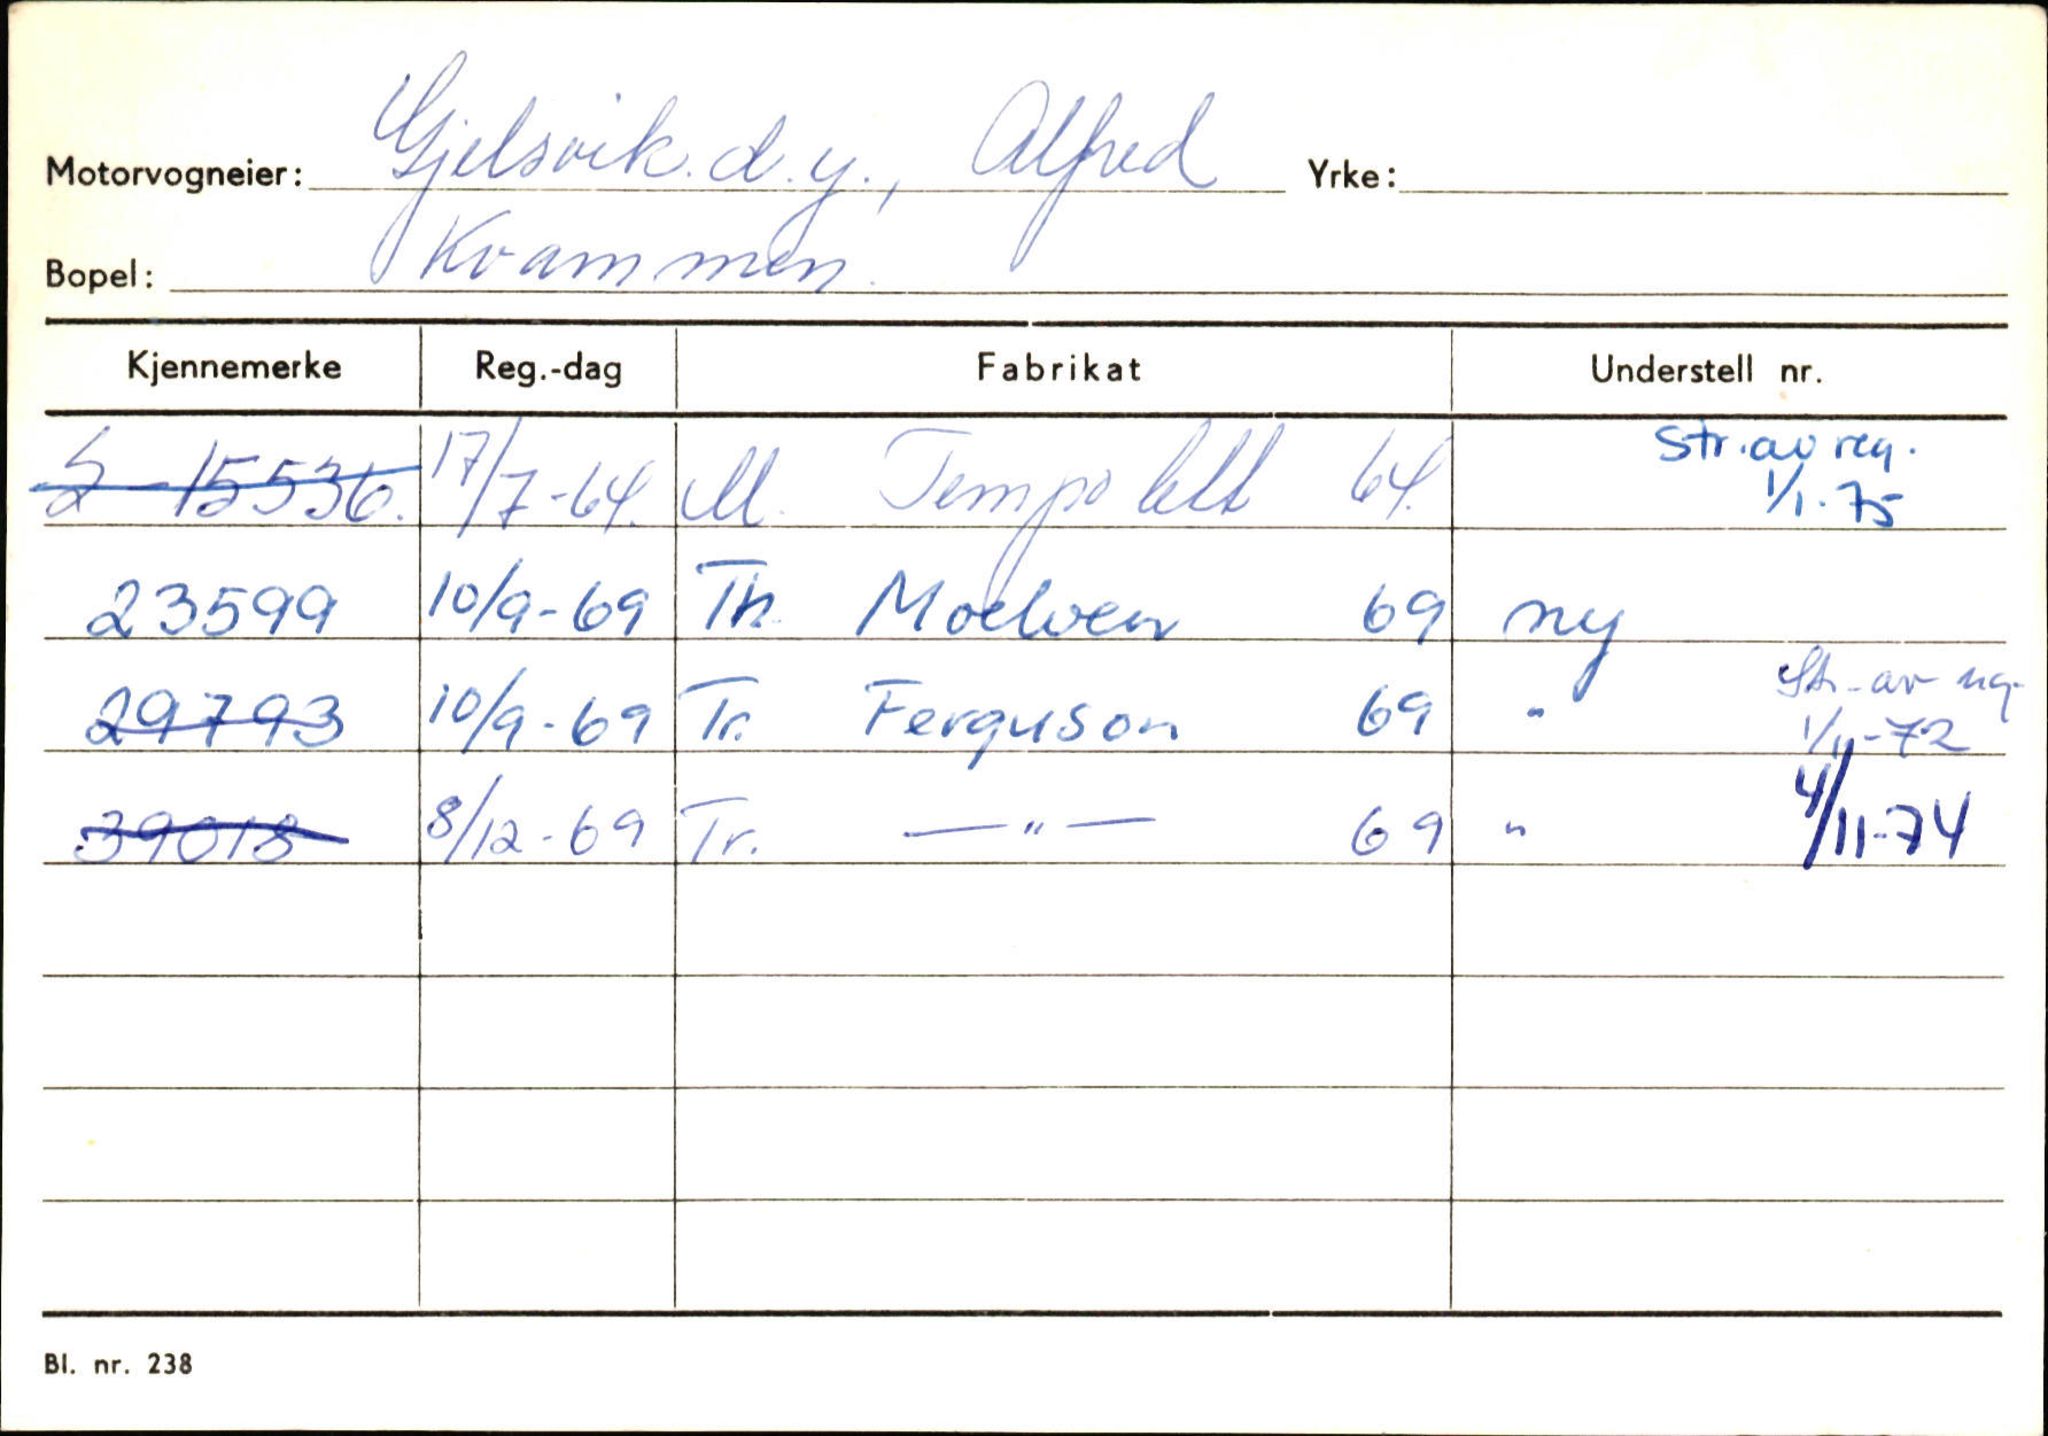 Motorvogneier: Gjelsvik d.y., Alfred Yrke:
Bopel: Kvammen.
Kjennemerke Reg.-dag Fabrikat Understell nr.
S-15536. 17/7-64. M. Tempo lett 64. Str. av reg.
1/1-75
23599 10/9-69 Th. Moelven 69 ny
29793 10/9-69 Tr. Ferguson 69 " Str. av reg.
1/11-72
39018 8/12-69 Tr. —"— 69 " 4/11-74
Bl. nr. 238